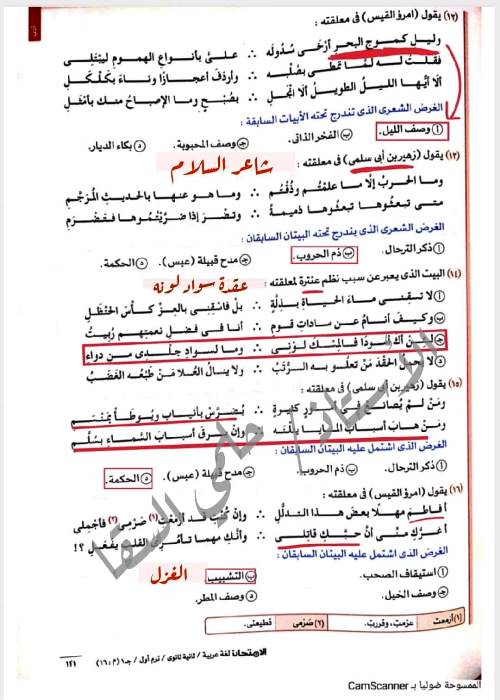 أدب
(١٢) يقول (امرؤ القيس) فى معلقته :
وليل كموج البحر أرخى سُدُولَه ∴ علىَّ بأنواع الهموم ليَبْتَلِى
فقلت له لمَّا تمطَّى بصُلْبه ∴ وأردَف أعجازًا وناءَ بكَلْكَلِ
ألَا أيُّها الليلُ الطويلُ ألَا انْجَلِ ∴ بصُبْحٍ وما الإصباحُ منك بأمْثَلِ
الغرض الشعرى الذى تندرج تحته الأبيات السابقة :
أ وصف الليل. ب الفخر الذاتى. ج وصف المحبوبة. د بكاء الديار.
شاعر السلام
(١٣) يقول (زهير بن أبى سلمى) فى معلقته :
وما الحربُ إلَّا ما علمْتُم وذُقْتُم ∴ وما هو عنها بالحديثِ المُرَجَّمِ
متى تبعثُوها تبعثُوها ذميمةً ∴ وتضْرَ إذا ضرَّيْتُمُوها فتَضْرَمِ
الغرض الشعرى الذى يندرج تحته البيتان السابقان :
أ ذكر الترحال. ب ذم الحروب. ج مدح قبيلة (عبس). د الحكمة.
عقدة سواد لونه
(١٤) البيت الذى يعبر عن سبب نظم عنترة لمعلقته :
أ لا تسقنى ماءَ الحياةِ بذِلَّةٍ ∴ بل فاسْقِنى بالعِزِّ كأسَ الحَنْظَلِ
ب وكيف أنامُ عن ساداتِ قومٍ ∴ أنا فى فضلِ نعمتِهِم رُبِيتُ
ج لئن أكُ أسْودًا فالمِسْكُ لونى ∴ وما لسوادِ جِلْدى من دواءِ
د لا يحملُ الحِقْدَ مَنْ تعلُو به الرُّتَبُ ∴ ولا ينالُ العُلَا مَنْ طَبْعُه الغَضَبُ
(١٥) يقول (زهير بن أبى سلمى) فى معلقته :
ومَنْ لم يُصانعْ فى أمورٍ كثيرةٍ ∴ يُضَرَّسْ بأنيابٍ ويُوطَأْ بمَنْسَمِ
ومَنْ هابَ أسبابَ المنايا ينَلْنَه ∴ وإنْ يرقَ أسبابَ السَّماءِ بسُلَّمِ
الغرض الذى اشتمل عليه البيتان السابقان :
أ ذكر الترحال. ب ذم الحروب. ج مدح قبيلة (عبس). د الحكمة.
(١٦) يقول (امرؤ القيس) فى معلقته :
أفاطِمَ مهلًا بعضَ هذا التدلُّلِ ∴ وإنْ كنتِ قد أزمَعْتِ(١) صَرْمِى(٢) فأجمِلى
أغرَّكِ منِّى أنَّ حُبَّكِ قاتِلى ∴ وأنَّكِ مهما تأمُرى القلبَ يفعَلِ ؟!
الغرض الذى اشتمل عليه البيتان السابقان :
أ استيقاف الصحب. ب التشبيب. الغزل
ج وصف الخيل. د وصف المطر.
(١) أزمعت عزمت، وقررت. (٢) صَرْمى قطيعتى.
الأستاذ / حلمي السقا
الامتحان لغة عربية / ثانية ثانوى / ترم أول / جـ١ (م : ١٦) ١٢١
الممسوحة ضوئيا بـ CamScanner